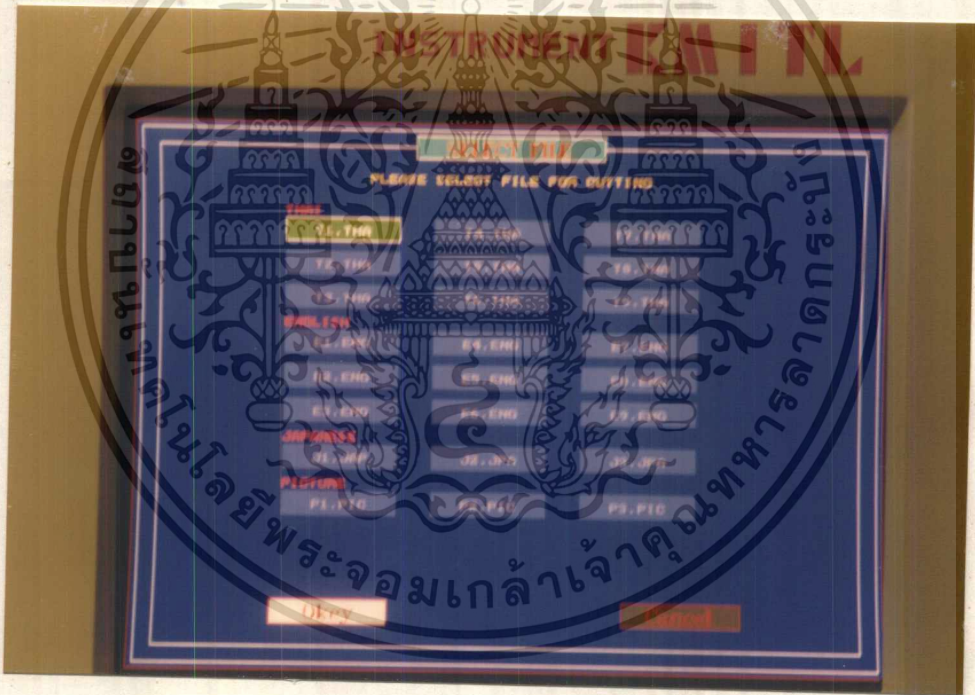 INSTRUMENT KMITL
SELECT FILE
PLEASE SELECT FILE FOR CUTTING
THAI
T1.THA T4.THA T7.THA
T2.THA T5.THA T8.THA
T3.THA T6.THA T9.THA
ENGLISH
E1.ENG E4.ENG E7.ENG
E2.ENG E5.ENG E8.ENG
E3.ENG E6.ENG E9.ENG
JAPANESE
J1.JPN J2.JPN J3.JPN
PICTURE
P1.PIC P2.PIC P3.PIC
Okey
สถาบันเทคโนโลยีพระจอมเกล้าเจ้าคุณทหารลาดกระบัง